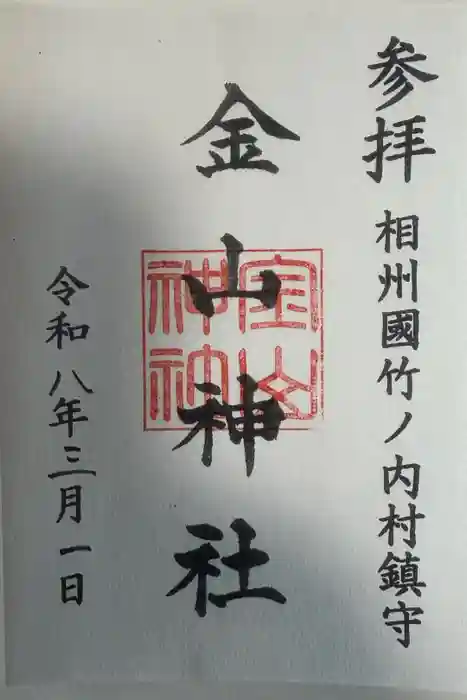 参拝
相州國竹ノ内村鎮守
金山神社
令和八年三月一日